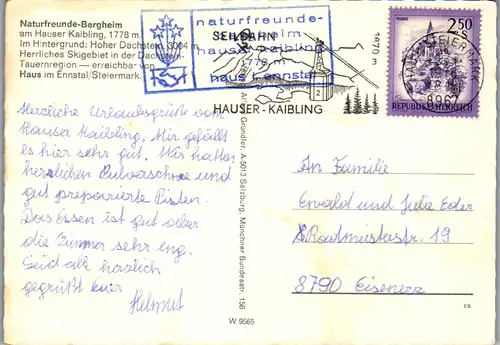 Naturfreunde-Bergheim
am Hauser Kaibling, 1778 m.
Im Hintergrund: Hoher Dachstein, 3004 m
Herrliches Skigebiet in der Dachstein-
Tauernregion — erreichbar von
Haus im Ennstal/Steiermark
naturfreunde-
bergheim
hauser kaibling
1778 m
haus / ennstal
SEILBAHN
1870 m
2
HAUSER-KAIBLING
2.50
S
REPUBLIK ÖSTERREICH
Herzliche Urlaubsgrüße vom
Hauser Kaibling. Mir gefällt
es hier sehr gut. Wir hatten
herrlichen Pulverschnee und
gut präparierte Pisten.
Das Essen ist gut aber
die Zimmer sehr eng.
Seid alle herzlich
gegrüßt Euer
Helmut
Gründler, A-5013 Salzburg, Münchner Bundesstr. 156
W 9565
An Familie
Ewald und Julie Eder
Radmeisterstr. 19
8790 Eisenerz